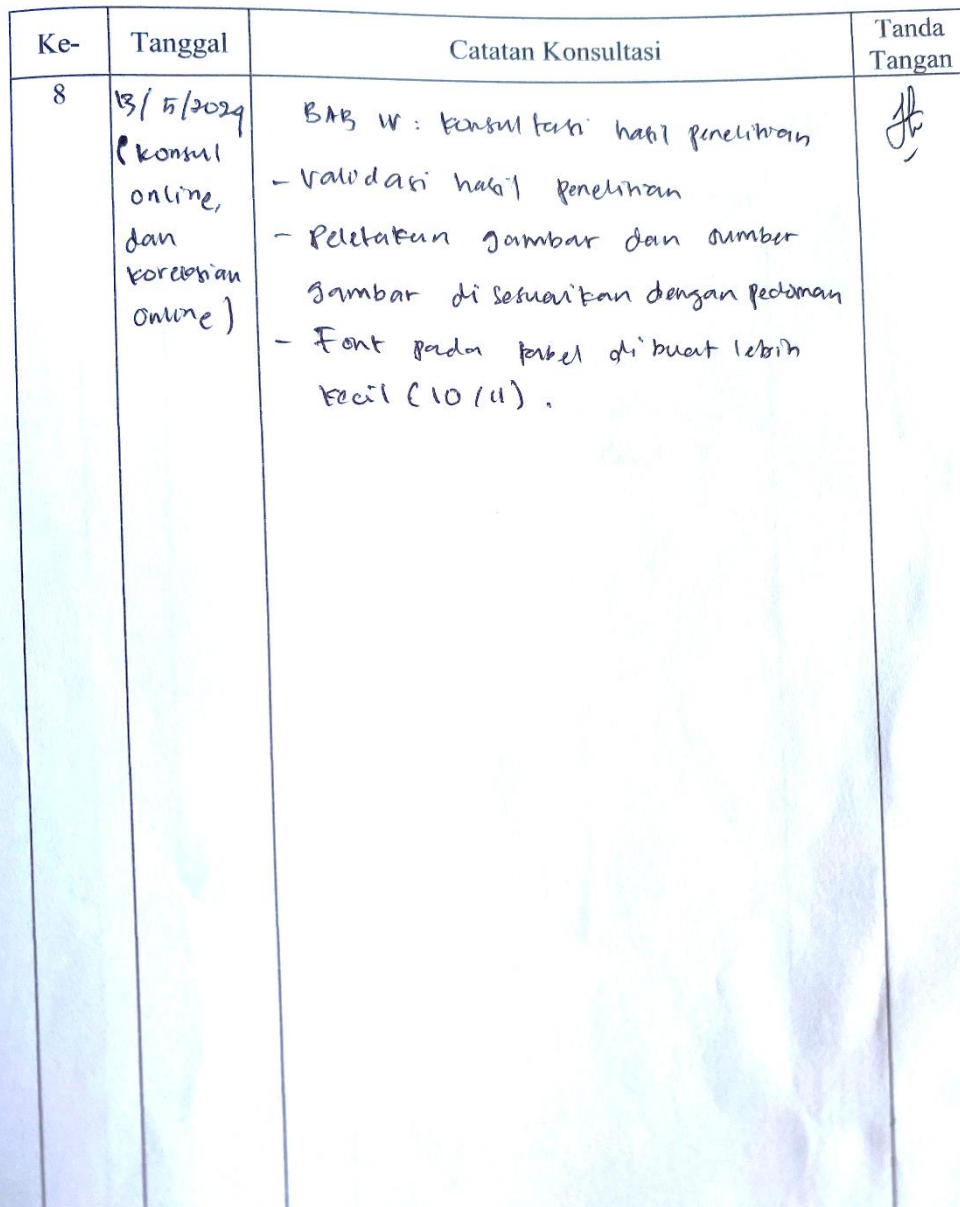 Ke-
Tanggal
Catatan Konsultasi
Tanda
Tangan
8
13/5/2024
(konsul
online,
dan
koreksian
online)
BAB IV : konsultasi hasil penelitian
- Validasi hasil penelitian
- Peletakan gambar dan sumber
gambar disesuaikan dengan pedoman
- Font pada tabel dibuat lebih
kecil (10/11).